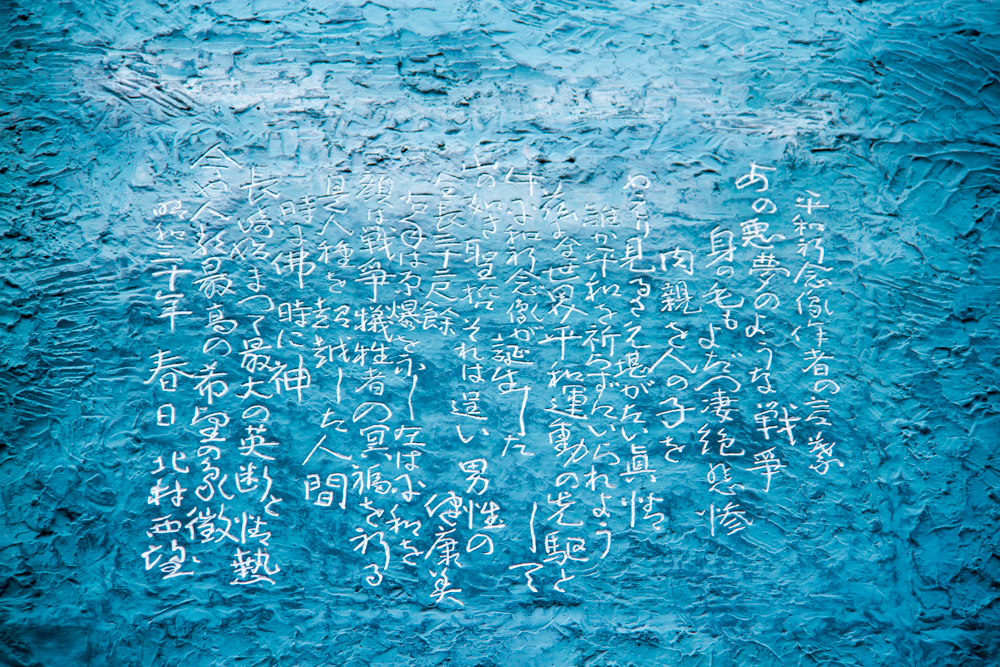 平和祈念像作者の言葉
あの悪夢のような戦争
身の毛もよだつ凄絶悲惨
肉親を人の子を
かえり見るさえ堪がたい真情
誰か平和を祈らずにいられよう
茲に全世界平和運動の先駆として
平和祈念像が誕生した
山の如き聖哲それは逞い男性の健康美
全長三十尺餘
右手は原爆を示し左手は平和を
顔は戦争犠牲者の冥福を祈る
是人種を超越した人間
時に佛時に神
長崎始まって最大の英断と情熱
今や人類最高の希望の象徴
昭和三十年 春日 北村西望